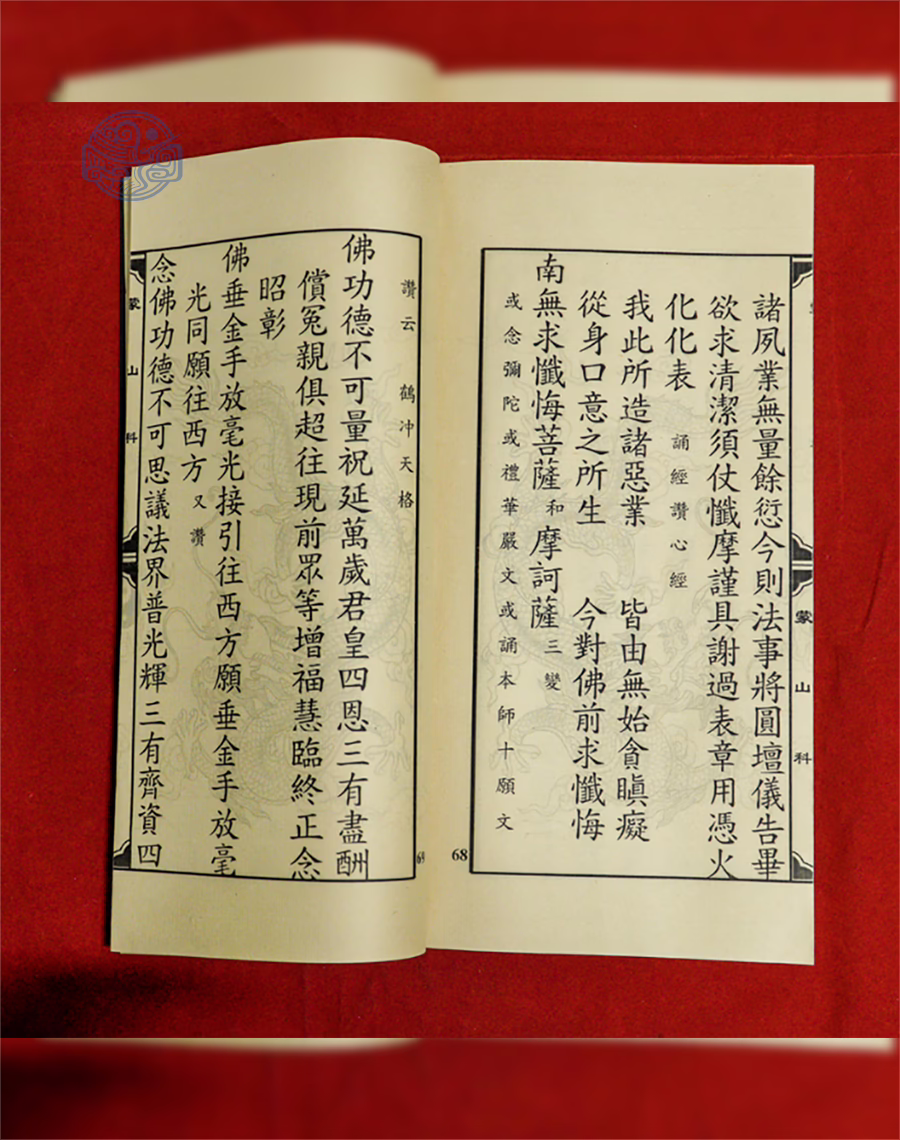 諸夙業無量餘愆今則法事將圓壇儀告畢
欲求清潔須仗懺摩謹具謝過表章用憑火
化化表 誦經讚心經
我此所造諸惡業 皆由無始貪瞋癡
從身口意之所生 今對佛前求懺悔
南無求懺悔菩薩 和 摩訶薩 三變
或念彌陀或禮華嚴文或誦本師十願文
68
蒙山科
69
讚云 鶴冲天格
佛功德不可量祝延萬歲君皇四恩三有盡酬
償冤親俱超往現前眾等增福慧臨終正念
昭彰
佛垂金手放毫光接引往西方願垂金手放毫
光同願往西方 又讚
念佛功德不可思議法界普光輝三有齊資四
蒙山科